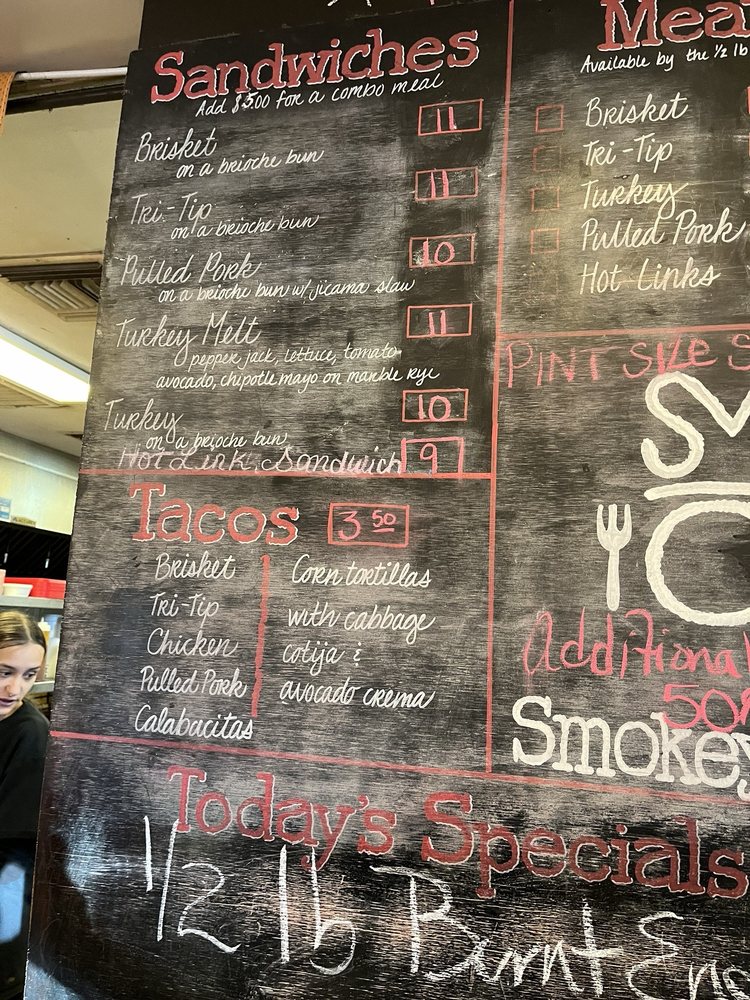 Sandwiches
Add $5.00 for a combo meal
Brisket 11
on a brioche bun
Tri-Tip 11
on a brioche bun
Pulled Pork 10
on a brioche bun w/ jicama slaw
Turkey Melt 11
pepper jack, lettuce, tomato
avocado, chipotle mayo on marble rye
Turkey 10
on a brioche bun
Hot Link Sandwich 9
Tacos 3 50
Brisket
Tri-Tip
Chicken
Pulled Pork
Calabacitas
Corn tortillas
with cabbage
cotija &
avocado crema
Available by the 1/2 lb
Brisket
Tri-Tip
Turkey
Pulled Pork
Hot Links
PINT SIZE
Additional
Smokey
Today's Specials
1/2 lb Burnt